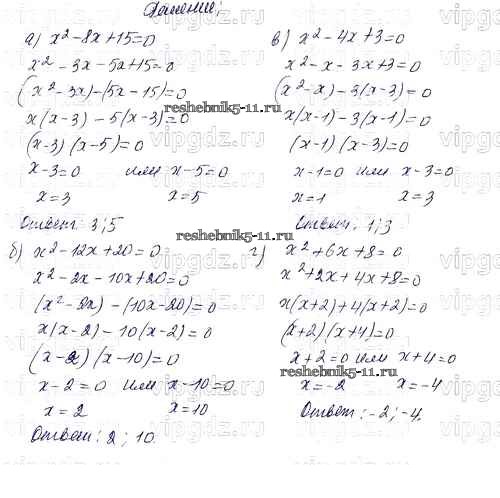 Решение:
а) x² - 8x + 15 = 0
x² - 3x - 5x + 15 = 0
(x² - 3x) - (5x - 15) = 0
x(x - 3) - 5(x - 3) = 0
(x - 3)(x - 5) = 0
x - 3 = 0 или x - 5 = 0
x = 3 x = 5
Ответ: 3; 5
б) x² - 12x + 20 = 0
x² - 2x - 10x + 20 = 0
(x² - 2x) - (10x - 20) = 0
x(x - 2) - 10(x - 2) = 0
(x - 2)(x - 10) = 0
x - 2 = 0 или x - 10 = 0
x = 2 x = 10
Ответ: 2; 10
в) x² - 4x + 3 = 0
x² - x - 3x + 3 = 0
(x² - x) - 3(x - 3) = 0
x(x - 1) - 3(x - 1) = 0
(x - 1)(x - 3) = 0
x - 1 = 0 или x - 3 = 0
x = 1 x = 3
Ответ: 1; 3
г) x² + 6x + 8 = 0
x² + 2x + 4x + 8 = 0
x(x + 2) + 4(x + 2) = 0
(x + 2)(x + 4) = 0
x + 2 = 0 или x + 4 = 0
x = -2 x = -4
Ответ: -2; -4.
reshebnik5-11.ru
reshebnik5-11.ru
reshebnik5-11.ru
vipgdz.ru